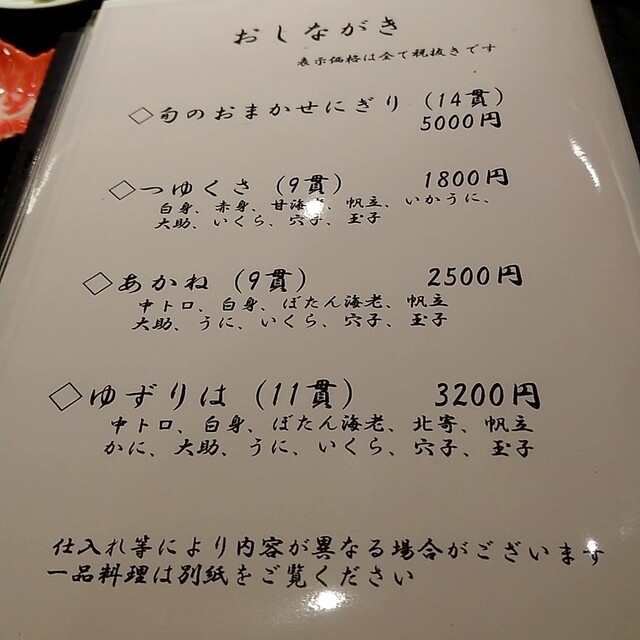 おしながき
表示価格は全て税抜きです
◇旬のおまかせにぎり（14貫）
5000円
◇つゆくさ（9貫） 1800円
白身、赤身、甘海老、帆立、いかうに、
大助、いくら、穴子、玉子
◇あかね（9貫） 2500円
中トロ、白身、ぼたん海老、帆立
大助、うに、いくら、穴子、玉子
◇ゆずりは（11貫） 3200円
中トロ、白身、ぼたん海老、北寄、帆立
かに、大助、うに、いくら、穴子、玉子
仕入れ等により内容が異なる場合がございます
一品料理は別紙をご覧ください